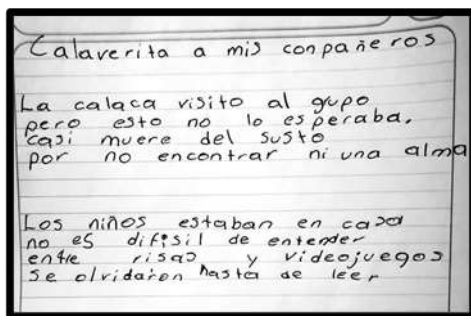 Calaverita a mis conpañeros
La calaca visito al gupo
pero esto no lo esperaba.
casi muere del susto
por no encontrar ni una alma
Los niños estaban en casa
no es difisil de entender
entre risas y videojuegos
se olvidaron hasta de leer